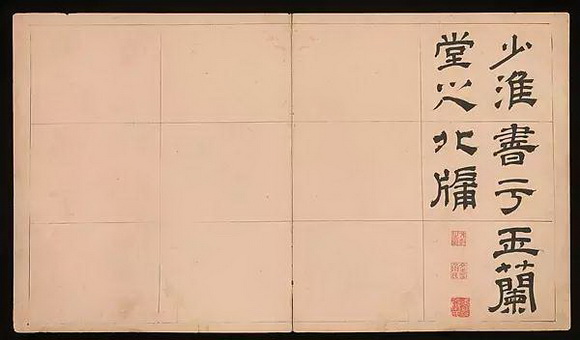 少淮書于玉蘭
堂之北牖